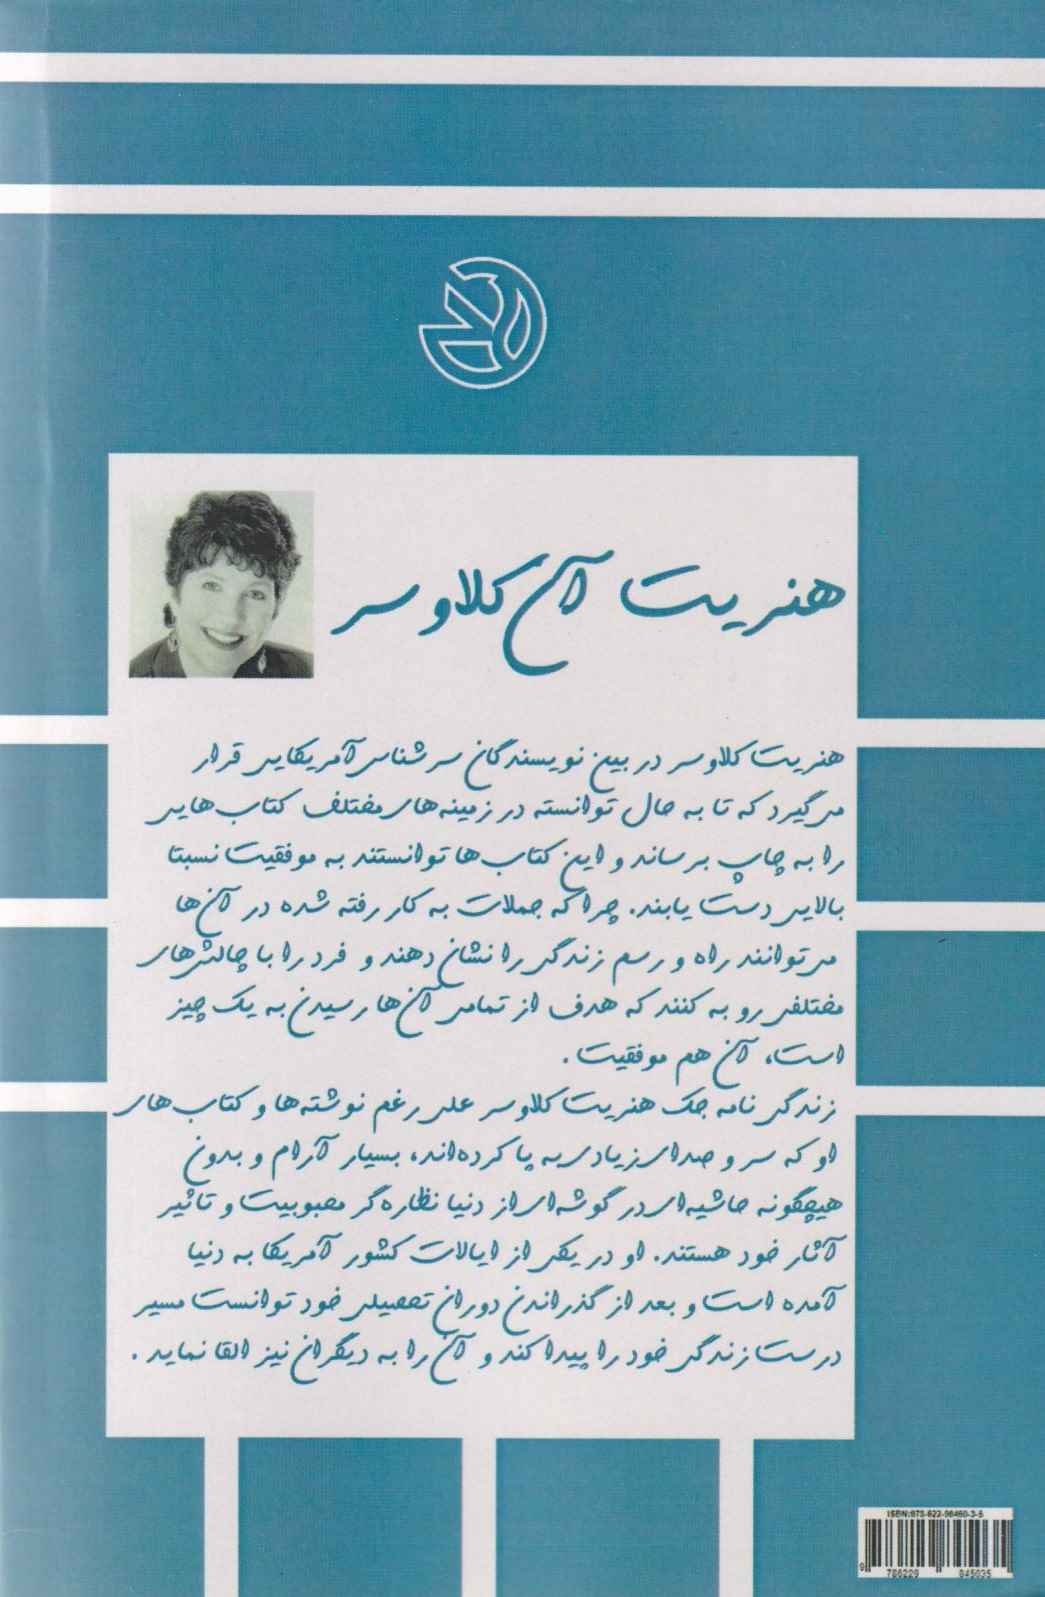 هنریت آن کلاوسر
هنریت کلاوسر در بین نویسندگان سرشناس آمریکایی قرار
می‌گیرد که تا به حال توانسته در زمینه‌های مختلف کتاب‌هایی
را به چاپ برساند و این کتاب‌ها توانستند به موفقیت نسبتا
بالایی دست یابند. چرا که جملات به کار رفته شده در آن‌ها
می‌توانند راه و رسم زندگی را نشان دهند و فرد را با چالش‌های
مختلفی رو به کنند که هدف از تمامی آن‌ها رسیدن به یک چیز
است، آن هم موفقیت.
زندگی نامه جک هنریت کلاوسر علی رغم نوشته‌ها و کتاب‌های
او که سر و صدای زیادی به پا کرده‌اند، بسیار آرام و بدون
هیچگونه حاشیه‌ای در گوشه‌ای از دنیا نظاره‌گر محبوبیت و تاثیر
آثار خود هستند. او در یکی از ایالات کشور آمریکا به دنیا
آمده است و بعد از گذراندن دوران تحصیلی خود توانست مسیر
درست زندگی خود را پیدا کند و آن را به دیگران نیز القا نماید.